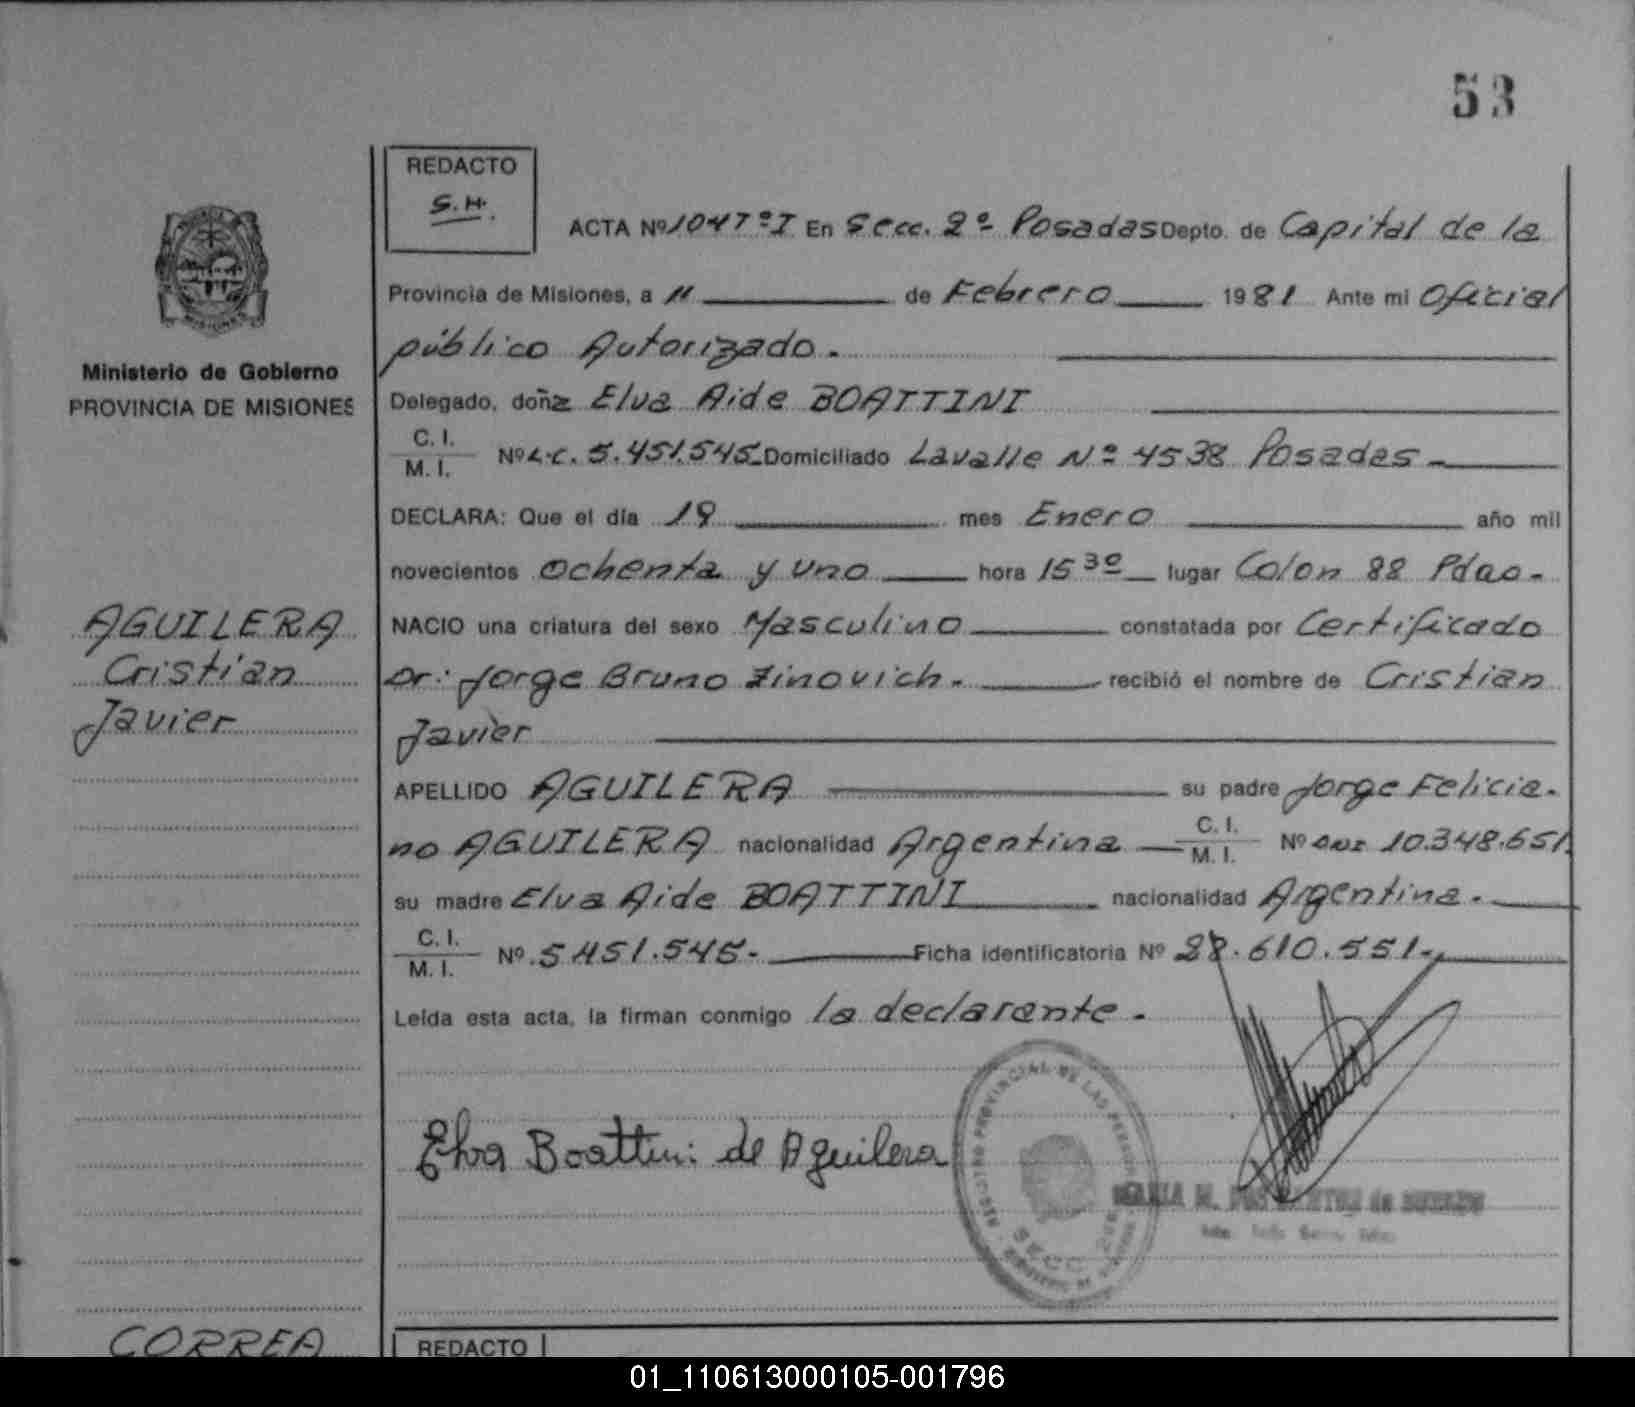 53
REDACTO
S.H.
ACTA Nº 1047ºI En Secc. 2º Posadas Depto. de Capital de la
Provincia de Misiones, a 11 de Febrero 1981 Ante mi Oficial
público Autorizado.
Ministerio de Gobierno
PROVINCIA DE MISIONES
Delegado, doña Elva Aide BOATTINI
C. I.
M. I. Nº L.C. 5.451.545 Domiciliado Lavalle Nº 4538 Posadas
DECLARA: Que el día 19 mes Enero año mil
novecientos ochenta y uno hora 15 30 lugar Colon 88 Pdas.
AGUILERA
Cristian
Javier
NACIO una criatura del sexo Masculino constatada por Certificado
Dr: Jorge Bruno Zinovich. recibió el nombre de Cristian
Javier
APELLIDO AGUILERA su padre Jorge Felicia-
no AGUILERA nacionalidad Argentina C. I. M. I. Nº DNI 10.348.651
su madre Elva Aide BOATTINI nacionalidad Argentina.
C. I.
M. I. Nº 5.451.545. Ficha identificatoria Nº 28.610.551.
Leída esta acta, la firman conmigo la declarante.
Elva Boattini de Aguilera
REGISTRO PROVINCIAL DE LAS PERSONAS
SECC. 2da
MARIA M.
CORREA
REDACTO
01_110613000105-001796